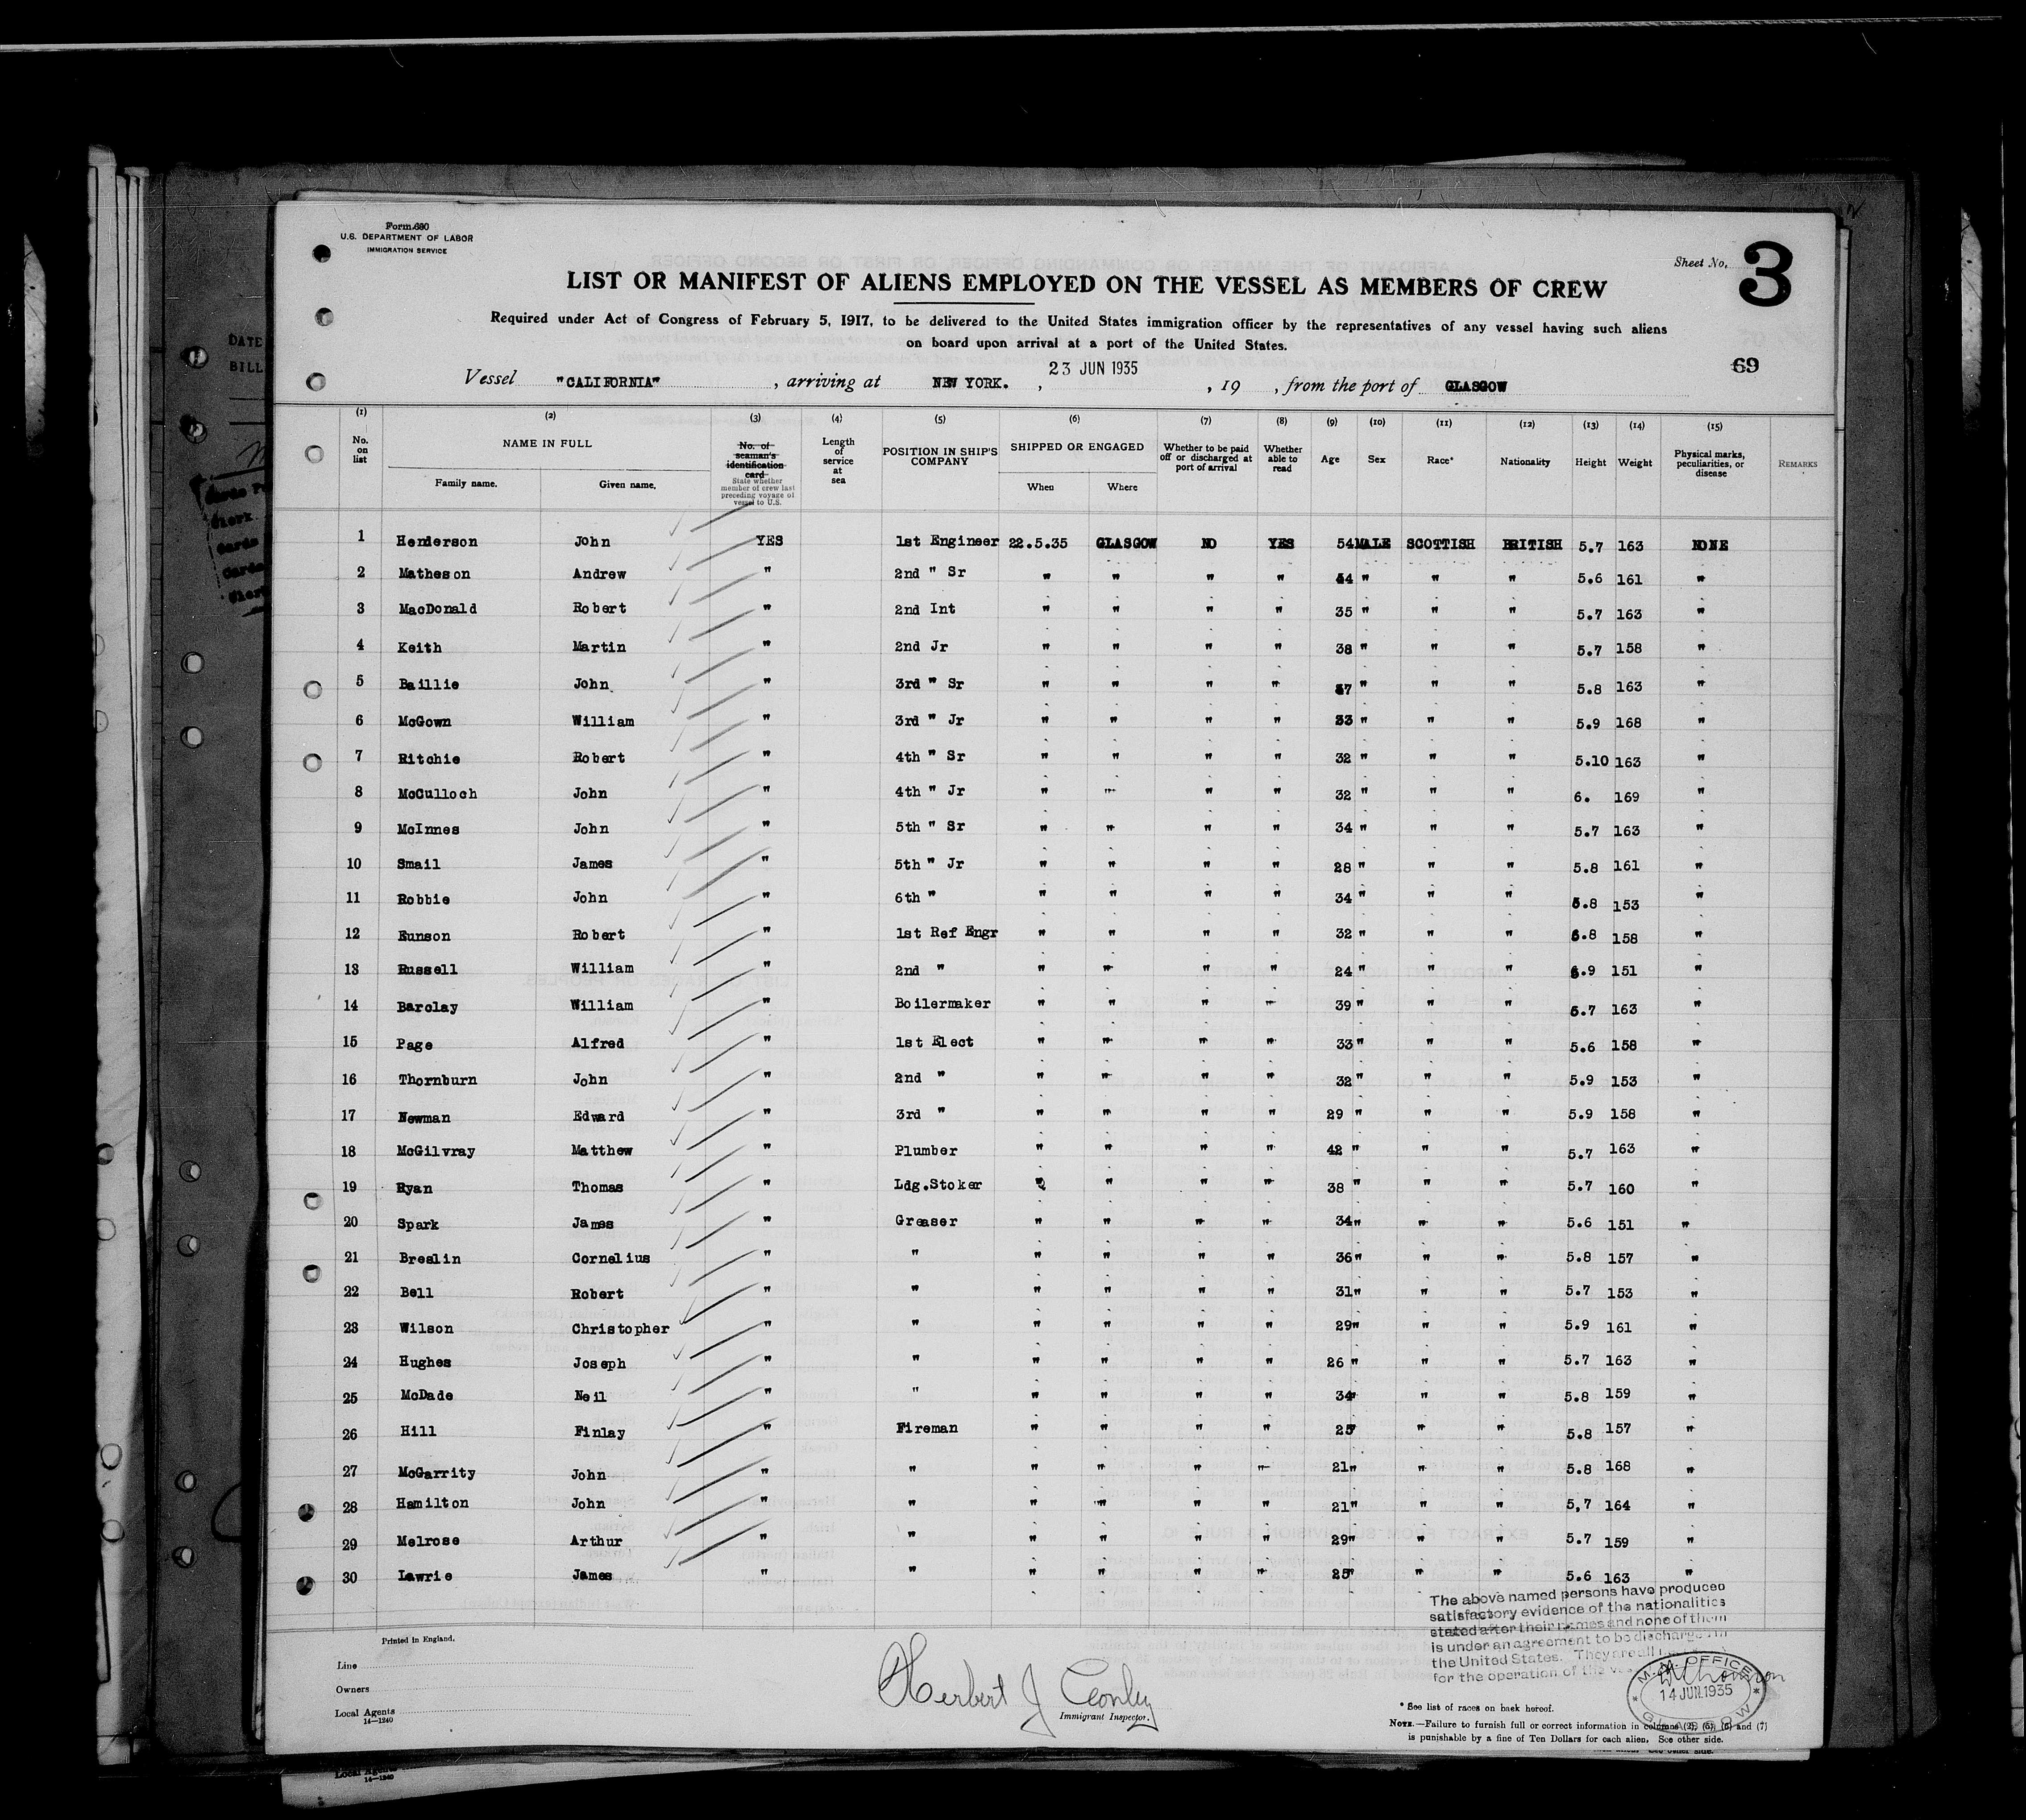 Form 680
U.S. DEPARTMENT OF LABOR
IMMIGRATION SERVICE
Sheet No. 3
LIST OR MANIFEST OF ALIENS EMPLOYED ON THE VESSEL AS MEMBERS OF CREW
Required under Act of Congress of February 5, 1917, to be delivered to the United States immigration officer by the representatives of any vessel having such aliens
on board upon arrival at a port of the United States.
69
Vessel "CALIFORNIA", arriving at NEW YORK. , 23 JUN 1935 , 19 , from the port of GLASGOW
(1) (2) (3) (4) (5) (6) (7) (8) (9) (10) (11) (12) (13) (14) (15)
No. on list NAME IN FULL Family name. Given name. No. of seaman's identification card State whether member of crew last preceding voyage of vessel to U.S. Length of service at sea POSITION IN SHIP'S COMPANY SHIPPED OR ENGAGED When Where Whether to be paid off or discharged at port of arrival Whether able to read Age Sex Race* Nationality Height Weight Physical marks, peculiarities, or disease REMARKS
1 Henderson John YES 1st Engineer 22.5.35 GLASGOW NO YES 54 MALE SCOTTISH BRITISH 5.7 163 NONE
2 Matheson Andrew " 2nd " Sr " " " " 44 " " " 5.6 161 "
3 MacDonald Robert " 2nd Int " " " " 35 " " " 5.7 163 "
4 Keith Martin " 2nd Jr " " " " 38 " " " 5.7 158 "
5 Baillie John " 3rd " Sr " " " " 37 " " " 5.8 163 "
6 McGown William " 3rd " Jr " " " " 33 " " " 5.9 168 "
7 Ritchie Robert " 4th " Sr " " " " 32 " " " 5.10 163 "
8 McCulloch John " 4th " Jr " " " " 32 " " " 6. 169 "
9 McInnes John " 5th " Sr " " " " 34 " " " 5.7 163 "
10 Smail James " 5th " Jr " " " " 28 " " " 5.8 161 "
11 Robbie John " 6th " " " " " 34 " " " 5.8 153 "
12 Eunson Robert " 1st Ref Engr " " " " 32 " " " 5.8 158 "
13 Russell William " 2nd " " " " " 24 " " " 5.9 151 "
14 Barclay William " Boilermaker " " " " 39 " " " 5.7 163 "
15 Page Alfred " 1st Elect " " " " 33 " " " 5.6 158 "
16 Thornburn John " 2nd " " " " " 32 " " " 5.9 153 "
17 Newman Edward " 3rd " " " " " 29 " " " 5.9 158 "
18 McGilvray Matthew " Plumber " " " " 42 " " " 5.7 163 "
19 Ryan Thomas " Ldg.Stoker " " " " 38 " " " 5.7 160 "
20 Spark James " Greaser " " " " 34 " " " 5.6 151 "
21 Breslin Cornelius " " " " " " 36 " " " 5.8 157 "
22 Bell Robert " " " " " " 31 " " " 5.7 153 "
23 Wilson Christopher " " " " " " 29 " " " 5.9 161 "
24 Hughes Joseph " " " " " " 26 " " " 5.7 163 "
25 McDade Neil " " " " " " 34 " " " 5.8 159 "
26 Hill Finlay " Fireman " " " " 25 " " " 5.8 157 "
27 McGarrity John " " " " " " 21 " " " 5.8 168 "
28 Hamilton John " " " " " " 21 " " " 5,7 164 "
29 Melrose Arthur " " " " " " 29 " " " 5.7 159 "
30 Lawrie James " " " " " " 25 " " " 5.6 163 "
The above named persons have produced
satisfactory evidence of the nationalities
stated after their names and none of them
is under an agreement to be discharged in
the United States. They are all
for the operation of the
Printed in England.
Line
Owners
Local Agents
14—1240
Herbert J Conley
Immigrant Inspector.
M.M. OFFICE
14 JUN 1935
GLASGOW
* See list of races on back hereof.
NOTE.—Failure to furnish full or correct information in columns (2), (5), (6) and (7)
is punishable by a fine of Ten Dollars for each alien. See other side.
Local Agents
14—1240
DATE
BILL